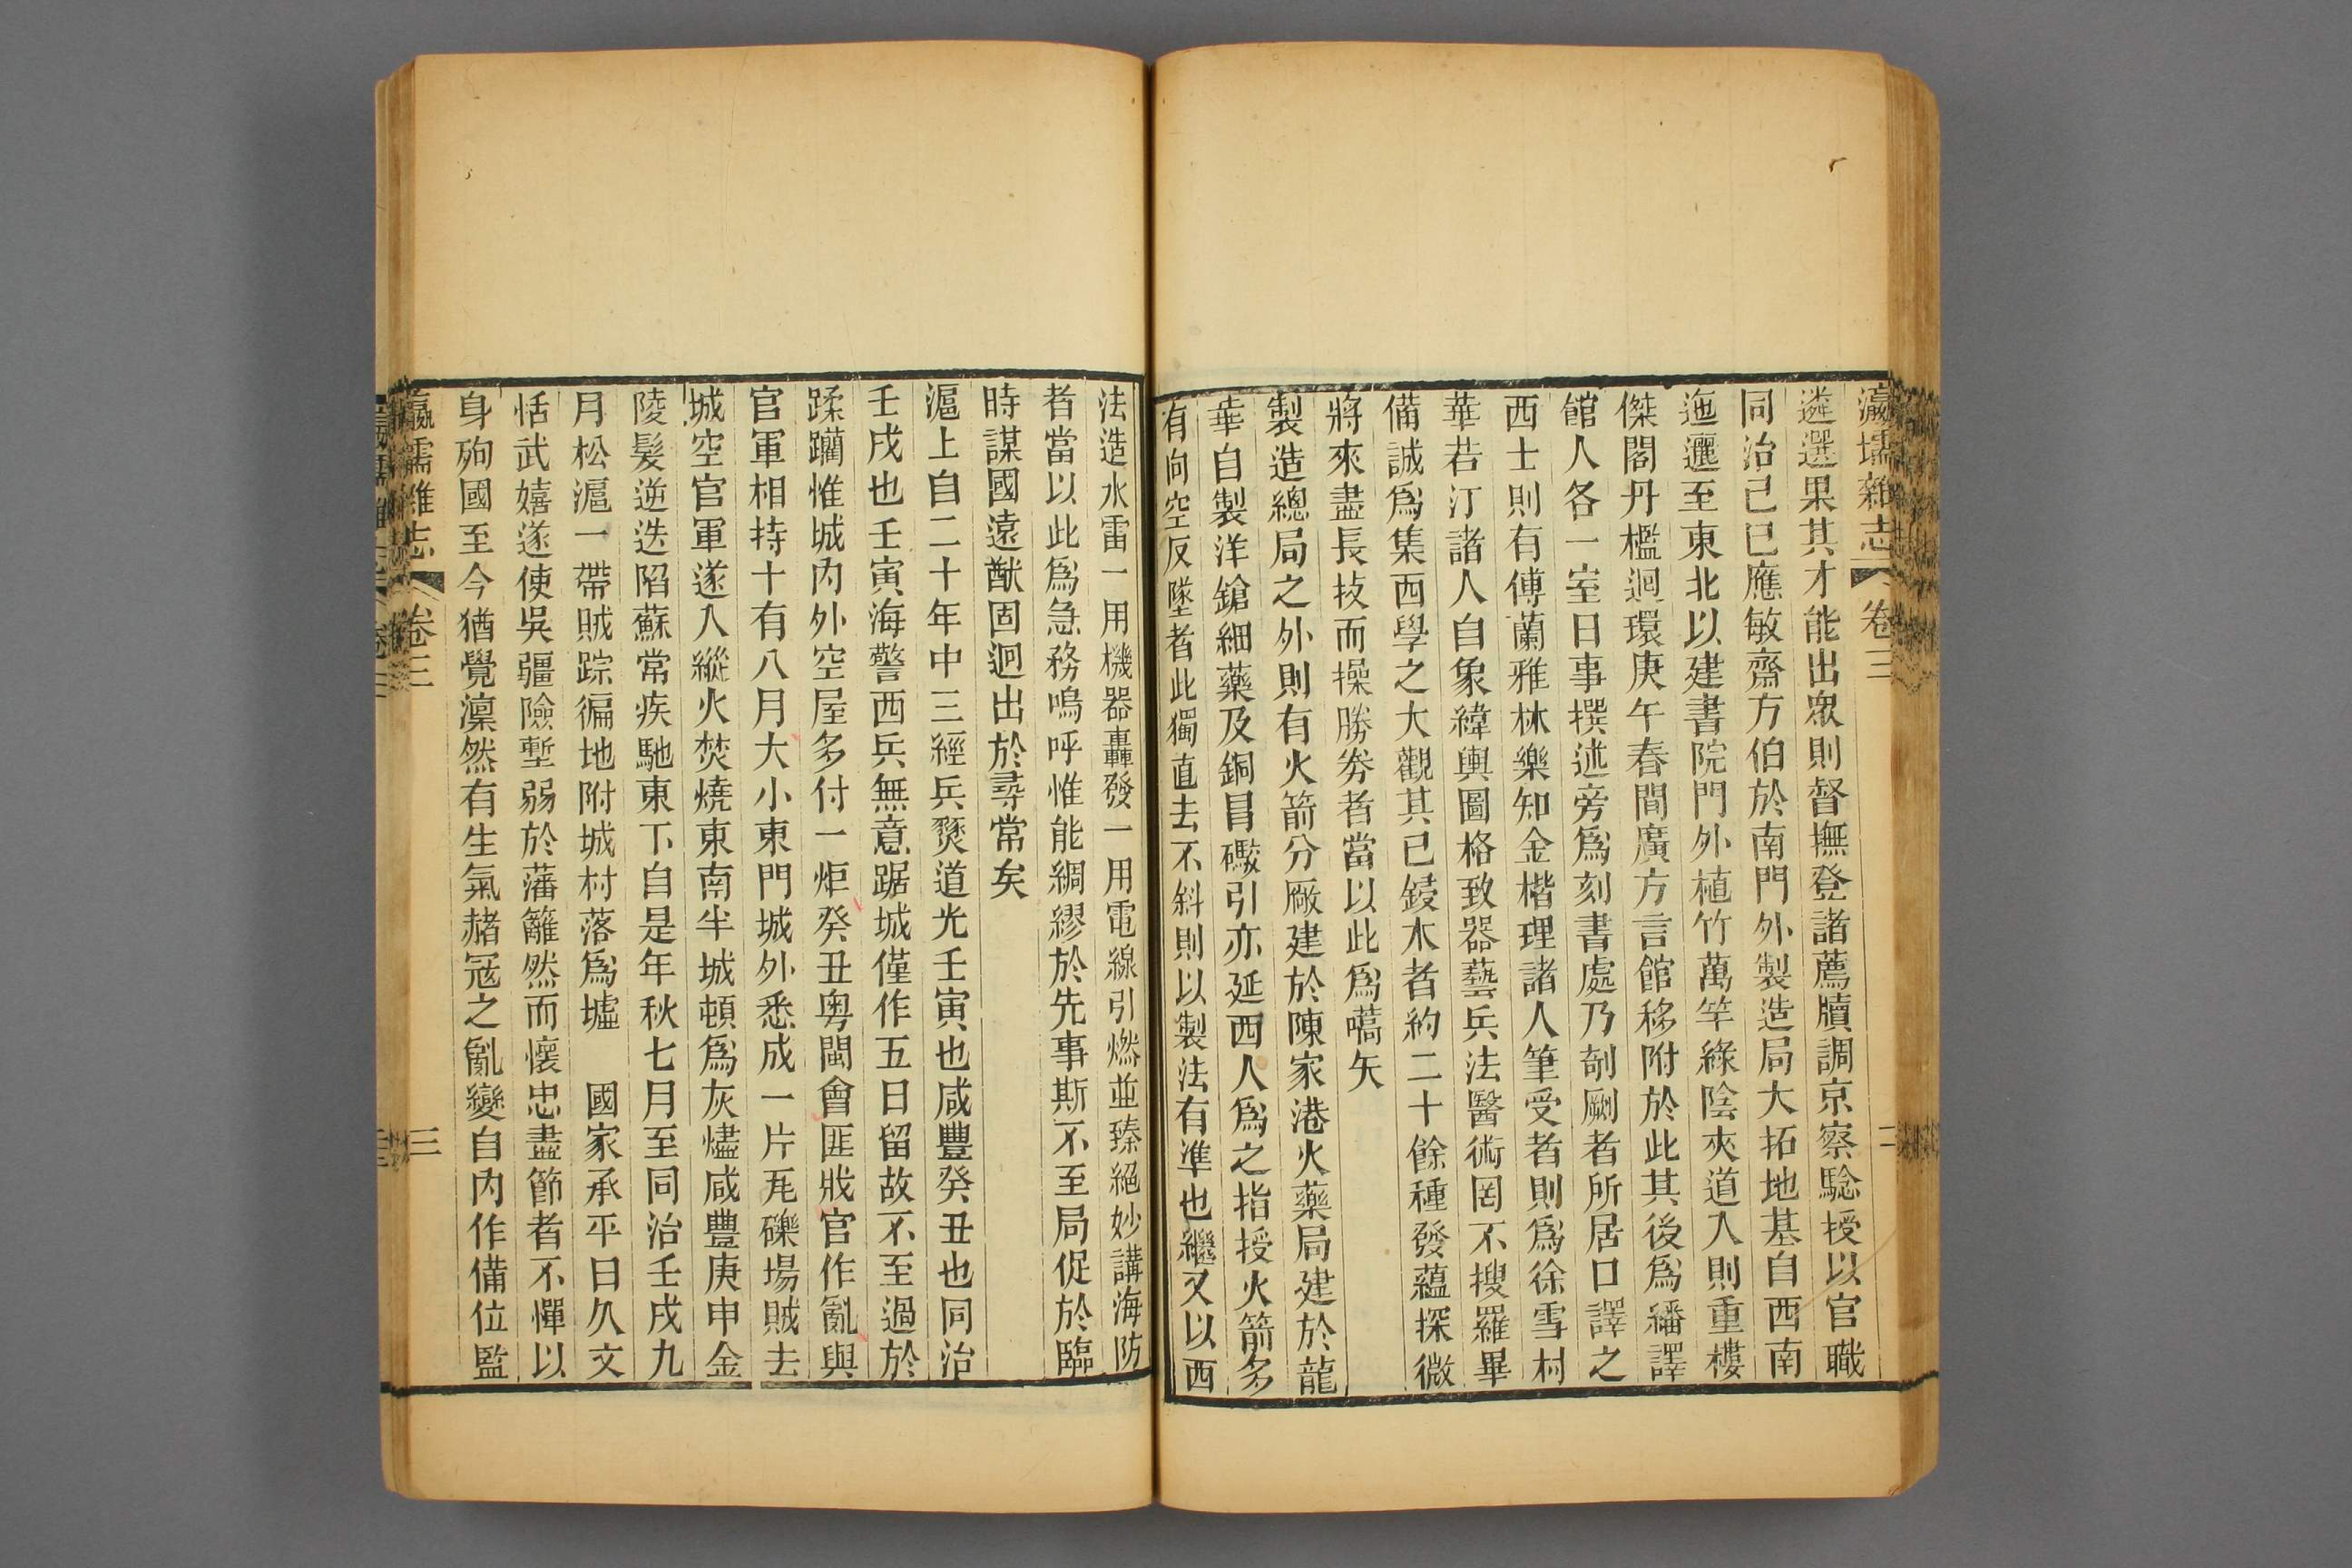 瀛壖雜志 卷三 二
遴選果其才能出眾則督撫登諸薦牘調京察驗授以官職
同治己巳應敏齋方伯於南門外製造局大拓地基自西南
迤邐至東北以建書院門外植竹萬竿綠陰夾道入則重樓
傑閣丹檻迴環庚午春間廣方言館移附於此其後爲繙譯
館人各一室日事撰述旁爲刻書處乃剞劂者所居口譯之
西士則有傅蘭雅林樂知金楷理諸人筆受者則爲徐雪村
華若汀諸人自象緯輿圖格致器藝兵法醫術罔不搜羅畢
備誠爲集西學之大觀其已鋟木者約二十餘種發蘊探微
將來盡長技而操勝券者當以此爲嚆矢
製造總局之外則有火箭分廠建於陳家港火藥局建於龍
華自製洋鎗細藥及銅冒礮引亦延西人爲之指授火箭多
有向空反墜者此獨直去不斜則以製法有準也繼又以西
法造水雷一用機器轟發一用電線引燃並臻絕妙講海防
者當以此爲急務嗚呼惟能綢繆於先事斯不至局促於臨
時謀國遠猷固迥出於尋常矣
滬上自二十年中三經兵燹道光壬寅也咸豐癸丑也同治
壬戌也壬寅海警西兵無意踞城僅作五日留故不至過於
蹂躪惟城內外空屋多付一炬癸丑粵閩會匪戕官作亂與
官軍相持十有八月大小東門城外悉成一片瓦礫場賊去
城空官軍遂入縱火焚燒東南半城頓爲灰燼咸豐庚申金
陵髮逆迭陷蘇常疾馳東下自是年秋七月至同治壬戌九
月松滬一帶賊踪徧地附城村落爲墟 國家承平日久文
恬武嬉遂使吳疆險塹弱於藩籬然而懷忠盡節者不憚以
身殉國至今猶覺凜然有生氣赭冠之亂變自內作備位監
瀛壖雜志 卷三 三